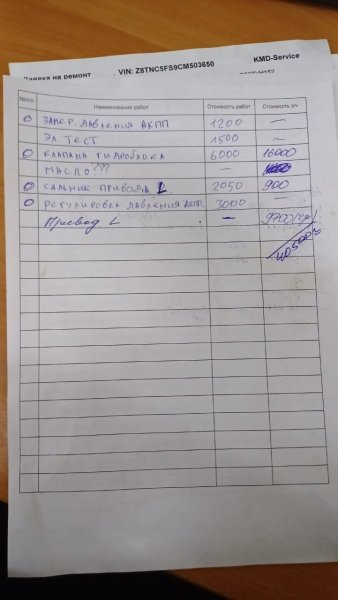 Заявка на ремонт VIN: Z8TNC5FS9CM503650 KMD-Service
№п/п Наименование работ Стоимость работ Стоимость з/ч
О ЗАМЕР. ДАВЛЕНИЯ АКПП 1200 —
ЭЛ. ТЕСТ 1500 —
О КЛАПАНА ГИДРОБЛОКА 6000 16000
МАСЛО??? —
О САЛЬНИК ПРИВОДА L 2050 900
О РЕГУЛИРОВКА ДАВЛЕНИЯ АКПП. 3000 —
Привод L — 9700
40500